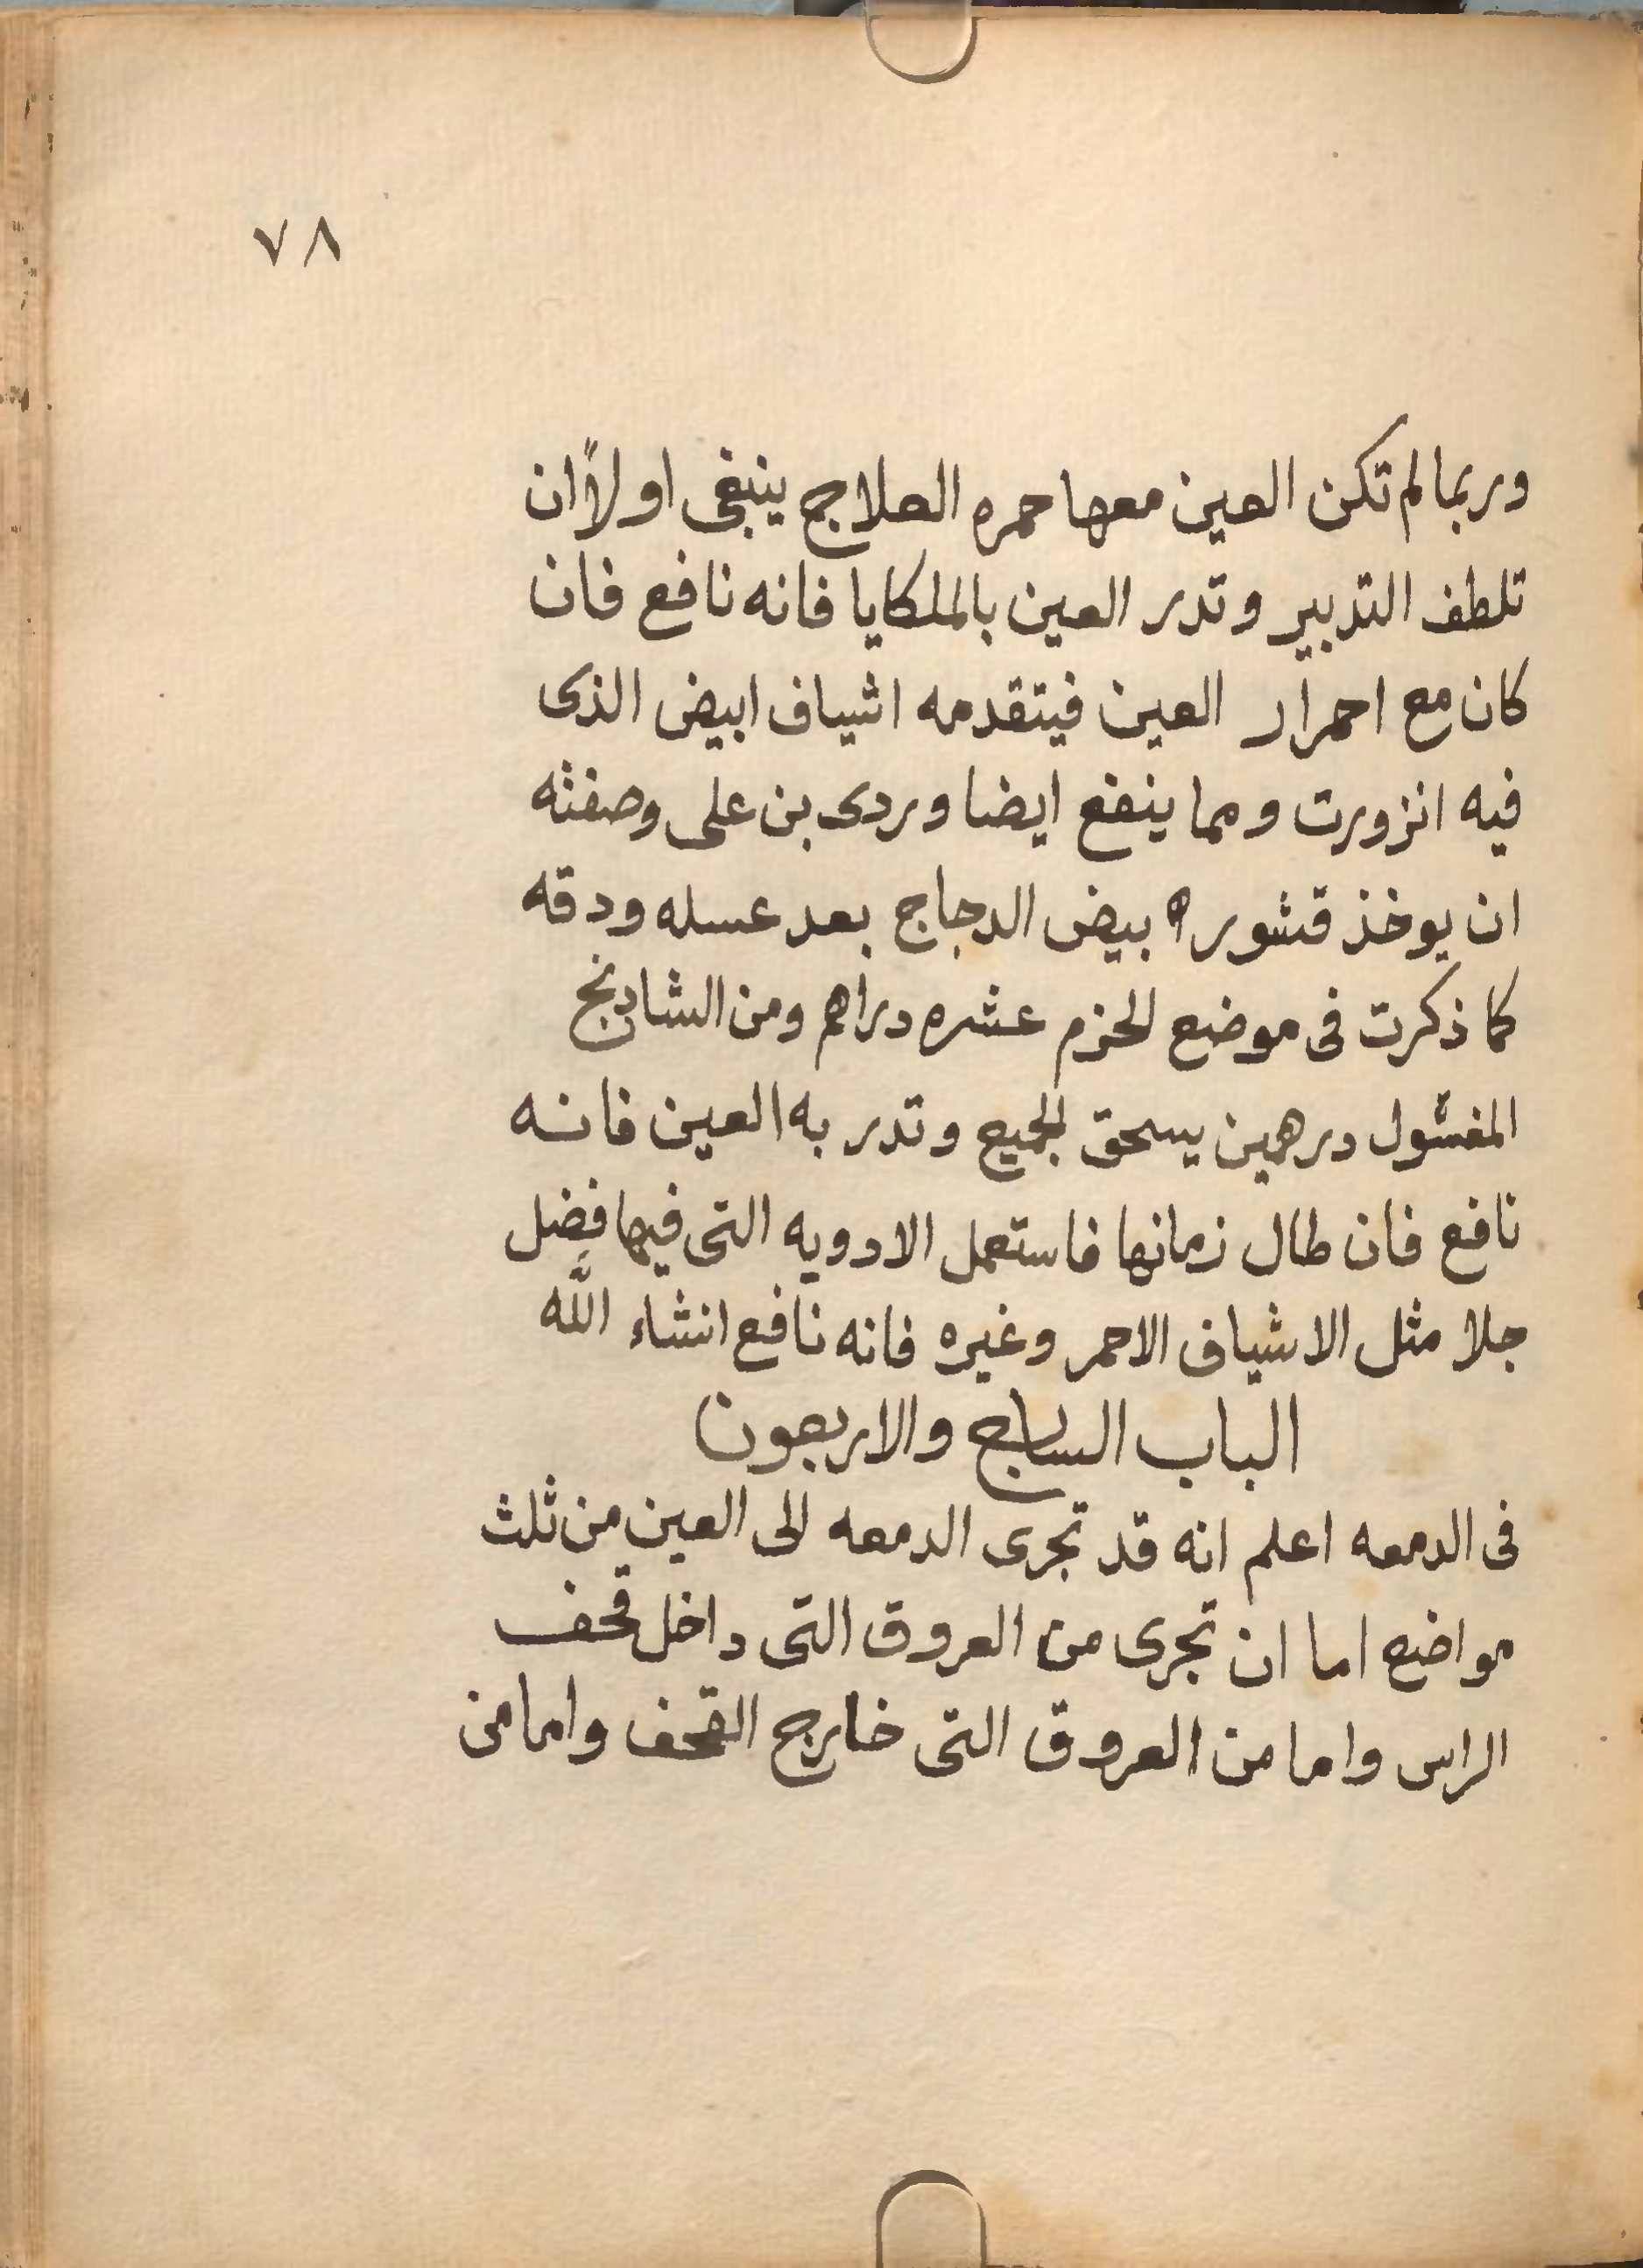 ٧٨
وربما لم تكن العين معها حمره العلاج ينبغى اولاً ان
تلطف التدبير وتدر العين بالملكايا فانه نافع فان
كان مع احمرار العين فيتقدمه اشياف ابيض الذى
فيه انزورت ومما ينفع ايضا وردى بن على وصفته
ان يوخذ قشور بيض الدجاج بعد عسله ودقه
كما ذكرت فى موضع الحزم عشره دراهم ومن الشادنج
المغسول درهمين يسحق الجميع وتدر به العين فانه
نافع فان طال زمانها فاستعمل الادويه التى فيها فضل
جلا مثل الاشياف الاحمر وغيره فانه نافع انشاء الله
الباب السابع والاربعون
فى الدمعه اعلم انه قد تجرى الدمعه الى العين من ثلث
مواضع اما ان تجرى من العروق التى داخل قحف
الراس واما من العروق التى خارج القحف واما من